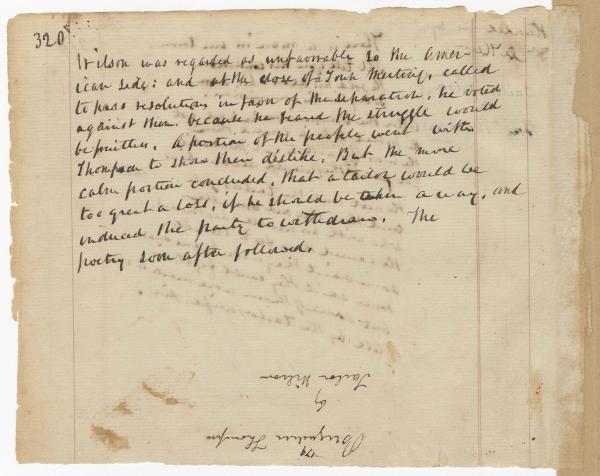 320
Wilson was regarded as unfavorable to the Amer-
ican side: and at the close of a Town Meeting, called
to pass resolutions in favor of the separation, he voted
against them, because he feared the struggle would
be fruitless. A portion of the people went with
Thompson to show their dislike. But the more
calm portion concluded, that a tailor would be
too great a loss, if he should be taken away, and
induced the party to withdraw. The
poetry soon after followed.
Benjamin Thompson
by
Tailor Wilson